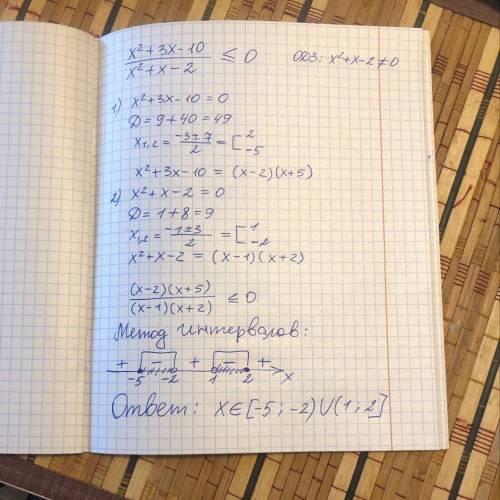 x²+3x-10 / x²+x-2 ≤ 0   ОДЗ: x²+x-2≠0
1) x²+3x-10=0
Д=9+40=49
x1,2 = -3±7 / 2 = [ 2 -5
x²+3x-10 = (x-2)(x+5)
2) x²+x-2=0
Д=1+8=9
x1,2 = -1±3 / 2 = [ 1 -2
x²+x-2 = (x-1)(x+2)
(x-2)(x+5) / (x-1)(x+2) ≤ 0
Метод интервалов:
+ - + - +
-5 -2 1 2 x
Ответ: x∈[-5;-2)∪(1;2]